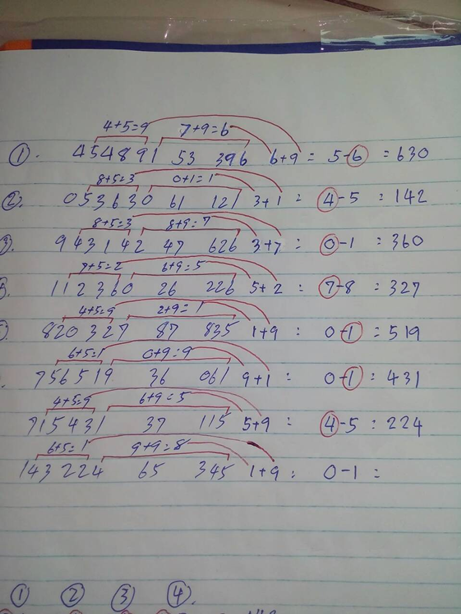 4+5=9 7+9=6
①. 454891 53 396 6+9= 5-6 =630
8+5=3 0+1=1
②. 053630 61 121 3+1 = 4-5 : 142
8+5=3 8+9=7
943142 47 626 3+7 = 0-1 = 360
7+5=2 6+9=5
112360 26 226 5+2 = 7-8 : 327
4+5=9 2+9=1
820327 87 835 1+9 : 0-1 = 519
6+5=1 0+9=9
756519 36 061 9+1 : 0-1 = 431
4+5=9 6+9=5
715431 37 115 5+9 : 4-5 : 224
6+5=1 9+9=8
143224 65 345 1+9 = 0-1 =
① ② ③ ④.